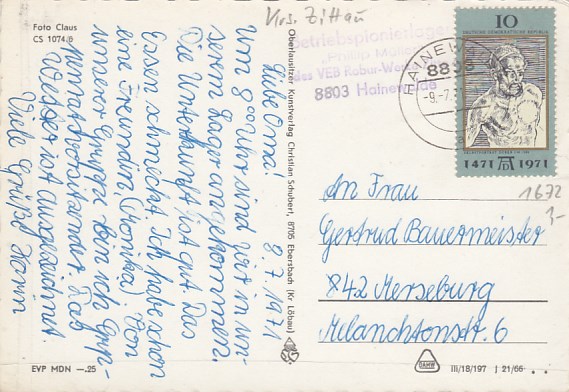 Foto Claus
CS 1074/6
Krs. Zittau
Betriebspionierlager
"Philipp Müller"
des VEB Robur-Werke
8803 Hainewalde
HAINEWALDE
-9.-7.71
10
DEUTSCHE DEMOKRATISCHE REPUBLIK
1471 1971
1672
3-
8.7.1971
Liebe Oma!
Um 8⁰⁰ Uhr sind wir in un-
serem Lager angekommen.
Die Unterkunft ist gut. Das
Essen schmeckt. Ich habe schon
eine Freundin (Monika). Von
unserer Gruppe bin ich Grup-
penratsvorsitzender. Das
Wetter ist ausgezeichnet.
Viele Grüße Karin
Oberlausitzer Kunstverlag Christian Schubert, 8705 Ebersbach (Kr Löbau)
An Frau
Gertrud Bauermeister
842 Merseburg
Melanchtonstr. 6
EVP MDN —.25
DAMW
III/18/197 J 21/66